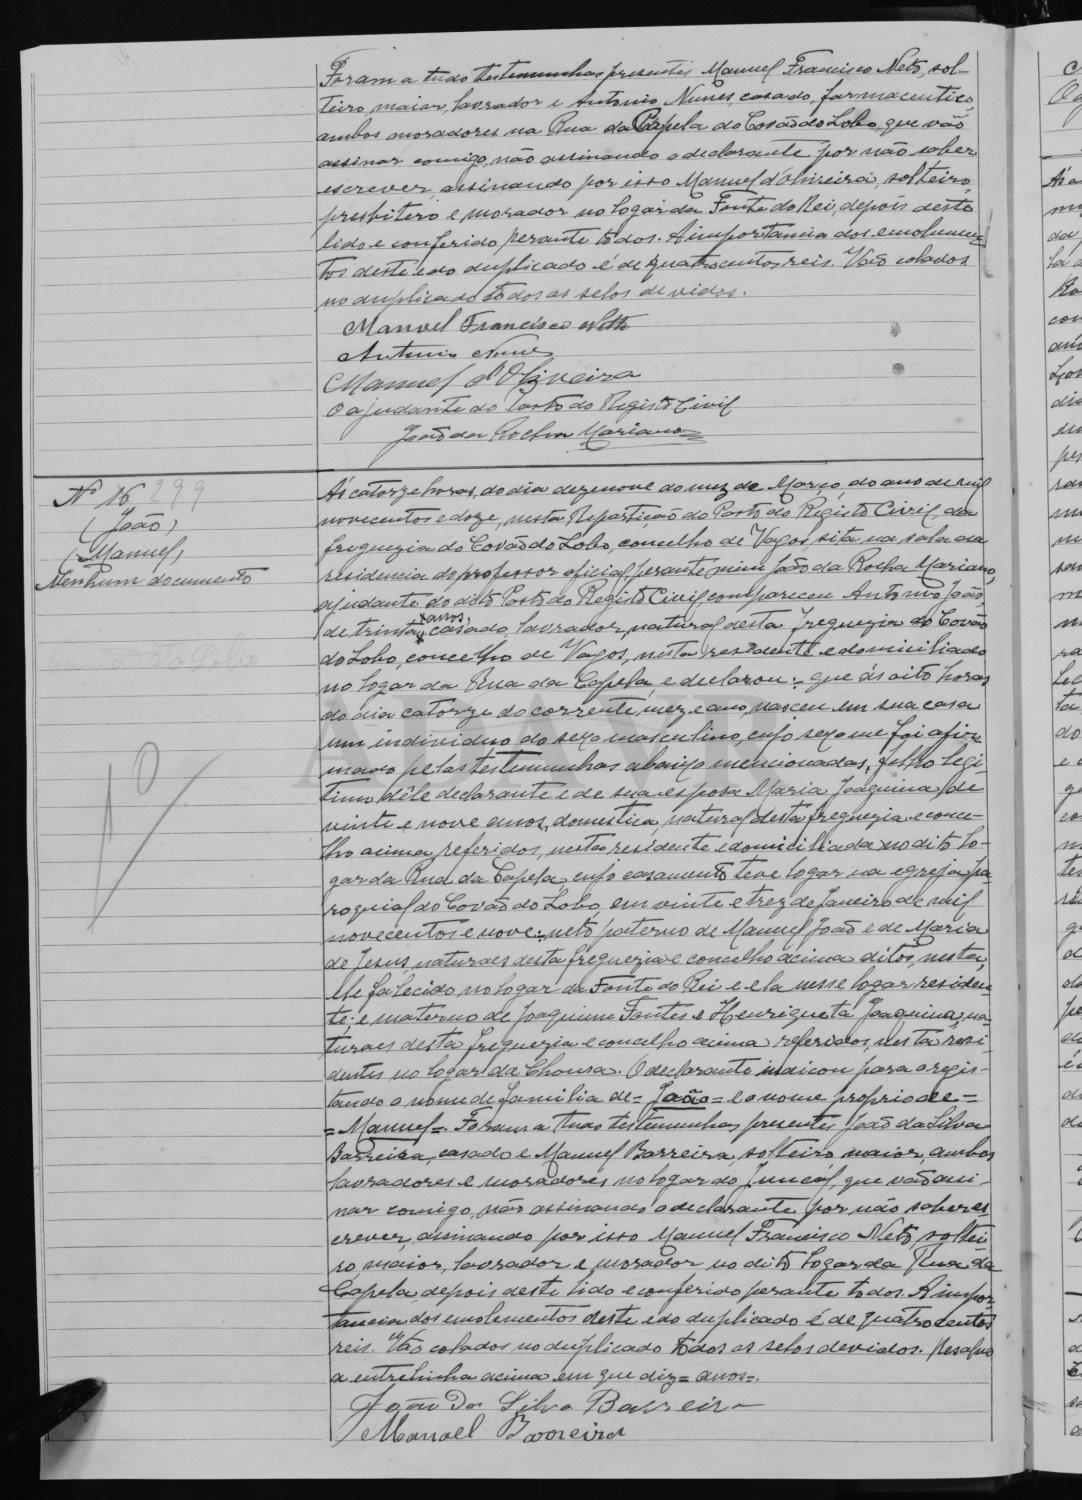 Foram a tudo testemunhas presentes Manuel Francisco Neto, sol-
teiro, maior, lavrador e Antonio Nunes, casado, farmaceutico,
ambos moradores na Rua da Capela do Covão do Lobo, que vão
assinar comigo, não assinando o declarante por não saber
escrever, assinando por isso Manuel d'Oliveira, solteiro,
presbitero e morador no logar da Fonte do Rei, depois deste
lido e conferido perante todos. A importancia dos emolumen-
tos deste e do duplicado é de quatrocentos reis. Vão colados
no duplicado todos os selos devidos.
Manuel Francisco Netto
Antonio Nunes
Manuel d'Oliveira
O ajudante do Posto do Registo Civil
João da Rocha Mariano
Nº 16 299
(João)
(Manuel)
Nenhum documento
Ás catorze horas, do dia dezenove do mez de Março, do ano de mil
novecentos e doze, nesta Repartição do Posto do Registo Civil da
freguezia do Covão do Lobo, concelho de Vagos, sita na sala da
residencia do professor oficial, perante mim João da Rocha Mariano,
ajudante do dito Posto do Registo Civil compareceu Antonio João,
de trinta anos, casado, lavrador, natural desta freguezia do Covão
do Lobo, concelho de Vagos, nesta residente e domiciliado
no logar da Rua da Capela, e declarou: que ás oito horas
do dia catorze do corrente mez e ano, nasceu em sua casa
um individuo do sexo masculino, cujo sexo me foi afir-
mado pelas testemunhas abaixo mencionadas, filho legi-
timo dêle declarante e de sua esposa Maria Joaquina, de
vinte e nove anos, domestica, natural desta freguezia e conce-
lho acima referidos, nesta residente e domiciliada no dito lo-
gar da Rua da Capela, cujo casamento teve logar na egreja pa-
roquial do Covão do Lobo, em vinte e trez de Janeiro de mil
novecentos e nove; neto paterno de Manuel João e de Maria
de Jesus, naturaes desta freguezia e concelho acima ditos, nesta,
ele falecido no logar da Fonte do Rei e ela nesse logar residen-
te; e materno de Joaquim Fontes e Henriqueta Joaquina, na-
turaes desta freguezia e concelho acima referidos, nesta resi-
dentes no logar da Chousa. O declarante indicou para o regis-
tando o nome de familia de = João = e o nome proprio de =
= Manuel =. Foram a tudo testemunhas presentes João da Silva
Barreira, casado e Manuel Barreira, solteiro, maior, ambos
lavradores e moradores no logar do Juncal, que vão assi-
nar comigo, não assinando o declarante por não saber es-
crever, assinando por isso Manuel Francisco Neto, soltei-
ro, maior, lavrador e morador no dito logar da Rua da
Capela, depois deste lido e conferido perante todos. A impor-
tancia dos emolementos deste e do duplicado é de quatrocentos
reis. Vão colados no duplicado todos os selos devidos. Resalvo
a entrelinha acima em que diz = anos =.
João Da Silva Barreira
Manoel Barreira